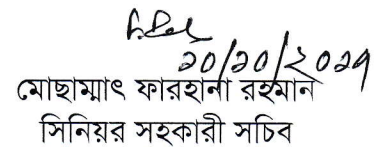 ১০/১০/২০১৭
মোছাম্মাৎ ফারহানা রহমান
সিনিয়র সহকারী সচিব